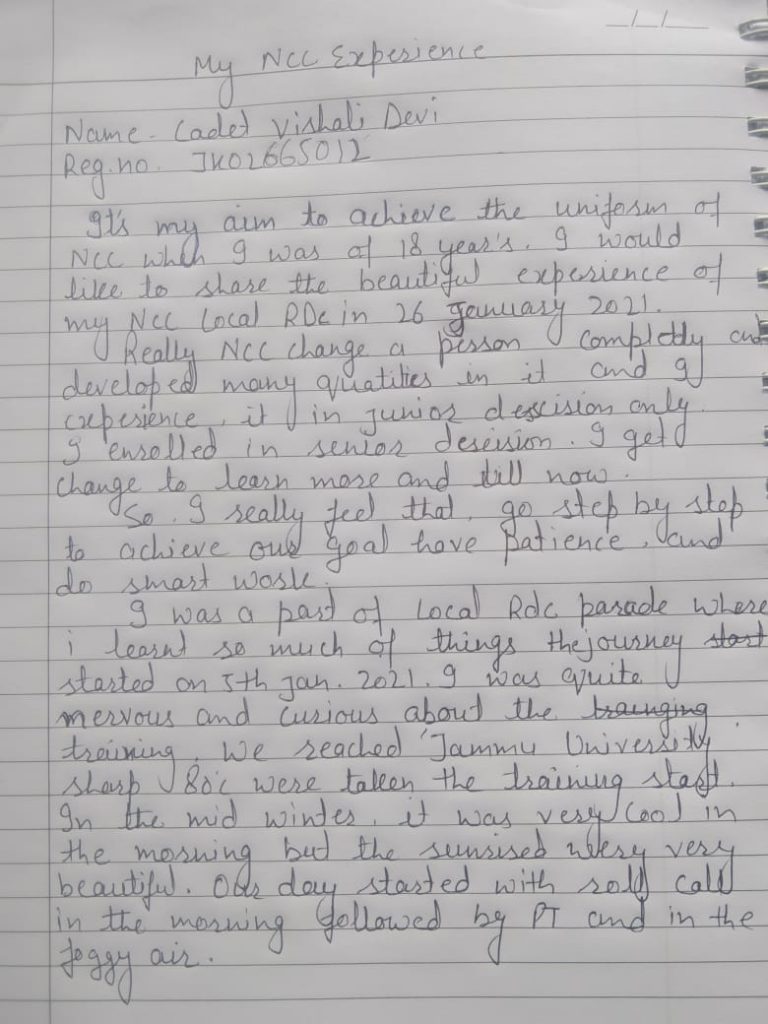 __/__/__
My NCC Experience
Name - Cadet Vishali Devi
Reg. no. JK02665012
It's my aim to achieve the uniform of
NCC when I was of 18 year's. I would
like to share the beautiful experience of
my NCC Local RDC in 26 January 2021.
Really NCC change a person completly and
developed many quatities in it and I
experience, it in junior descision only.
I enrolled in senior deseision. I get
change to learn more and till now.
So, I really feel that, go step by step
to achieve our goal have patience, and
do smart work.
I was a part of Local Rdc parade where
i learnt so much of things the journey start
started on 5th Jan. 2021. I was quite
nervous and curious about the trainging
training. We reached Jammu University
sharp 8o'c were taken the training start.
In the mid winter, it was very cool in
the morning but the sunrised were very
beautiful. Our day started with roll call
in the morning followed by PT and in the
foggy air.